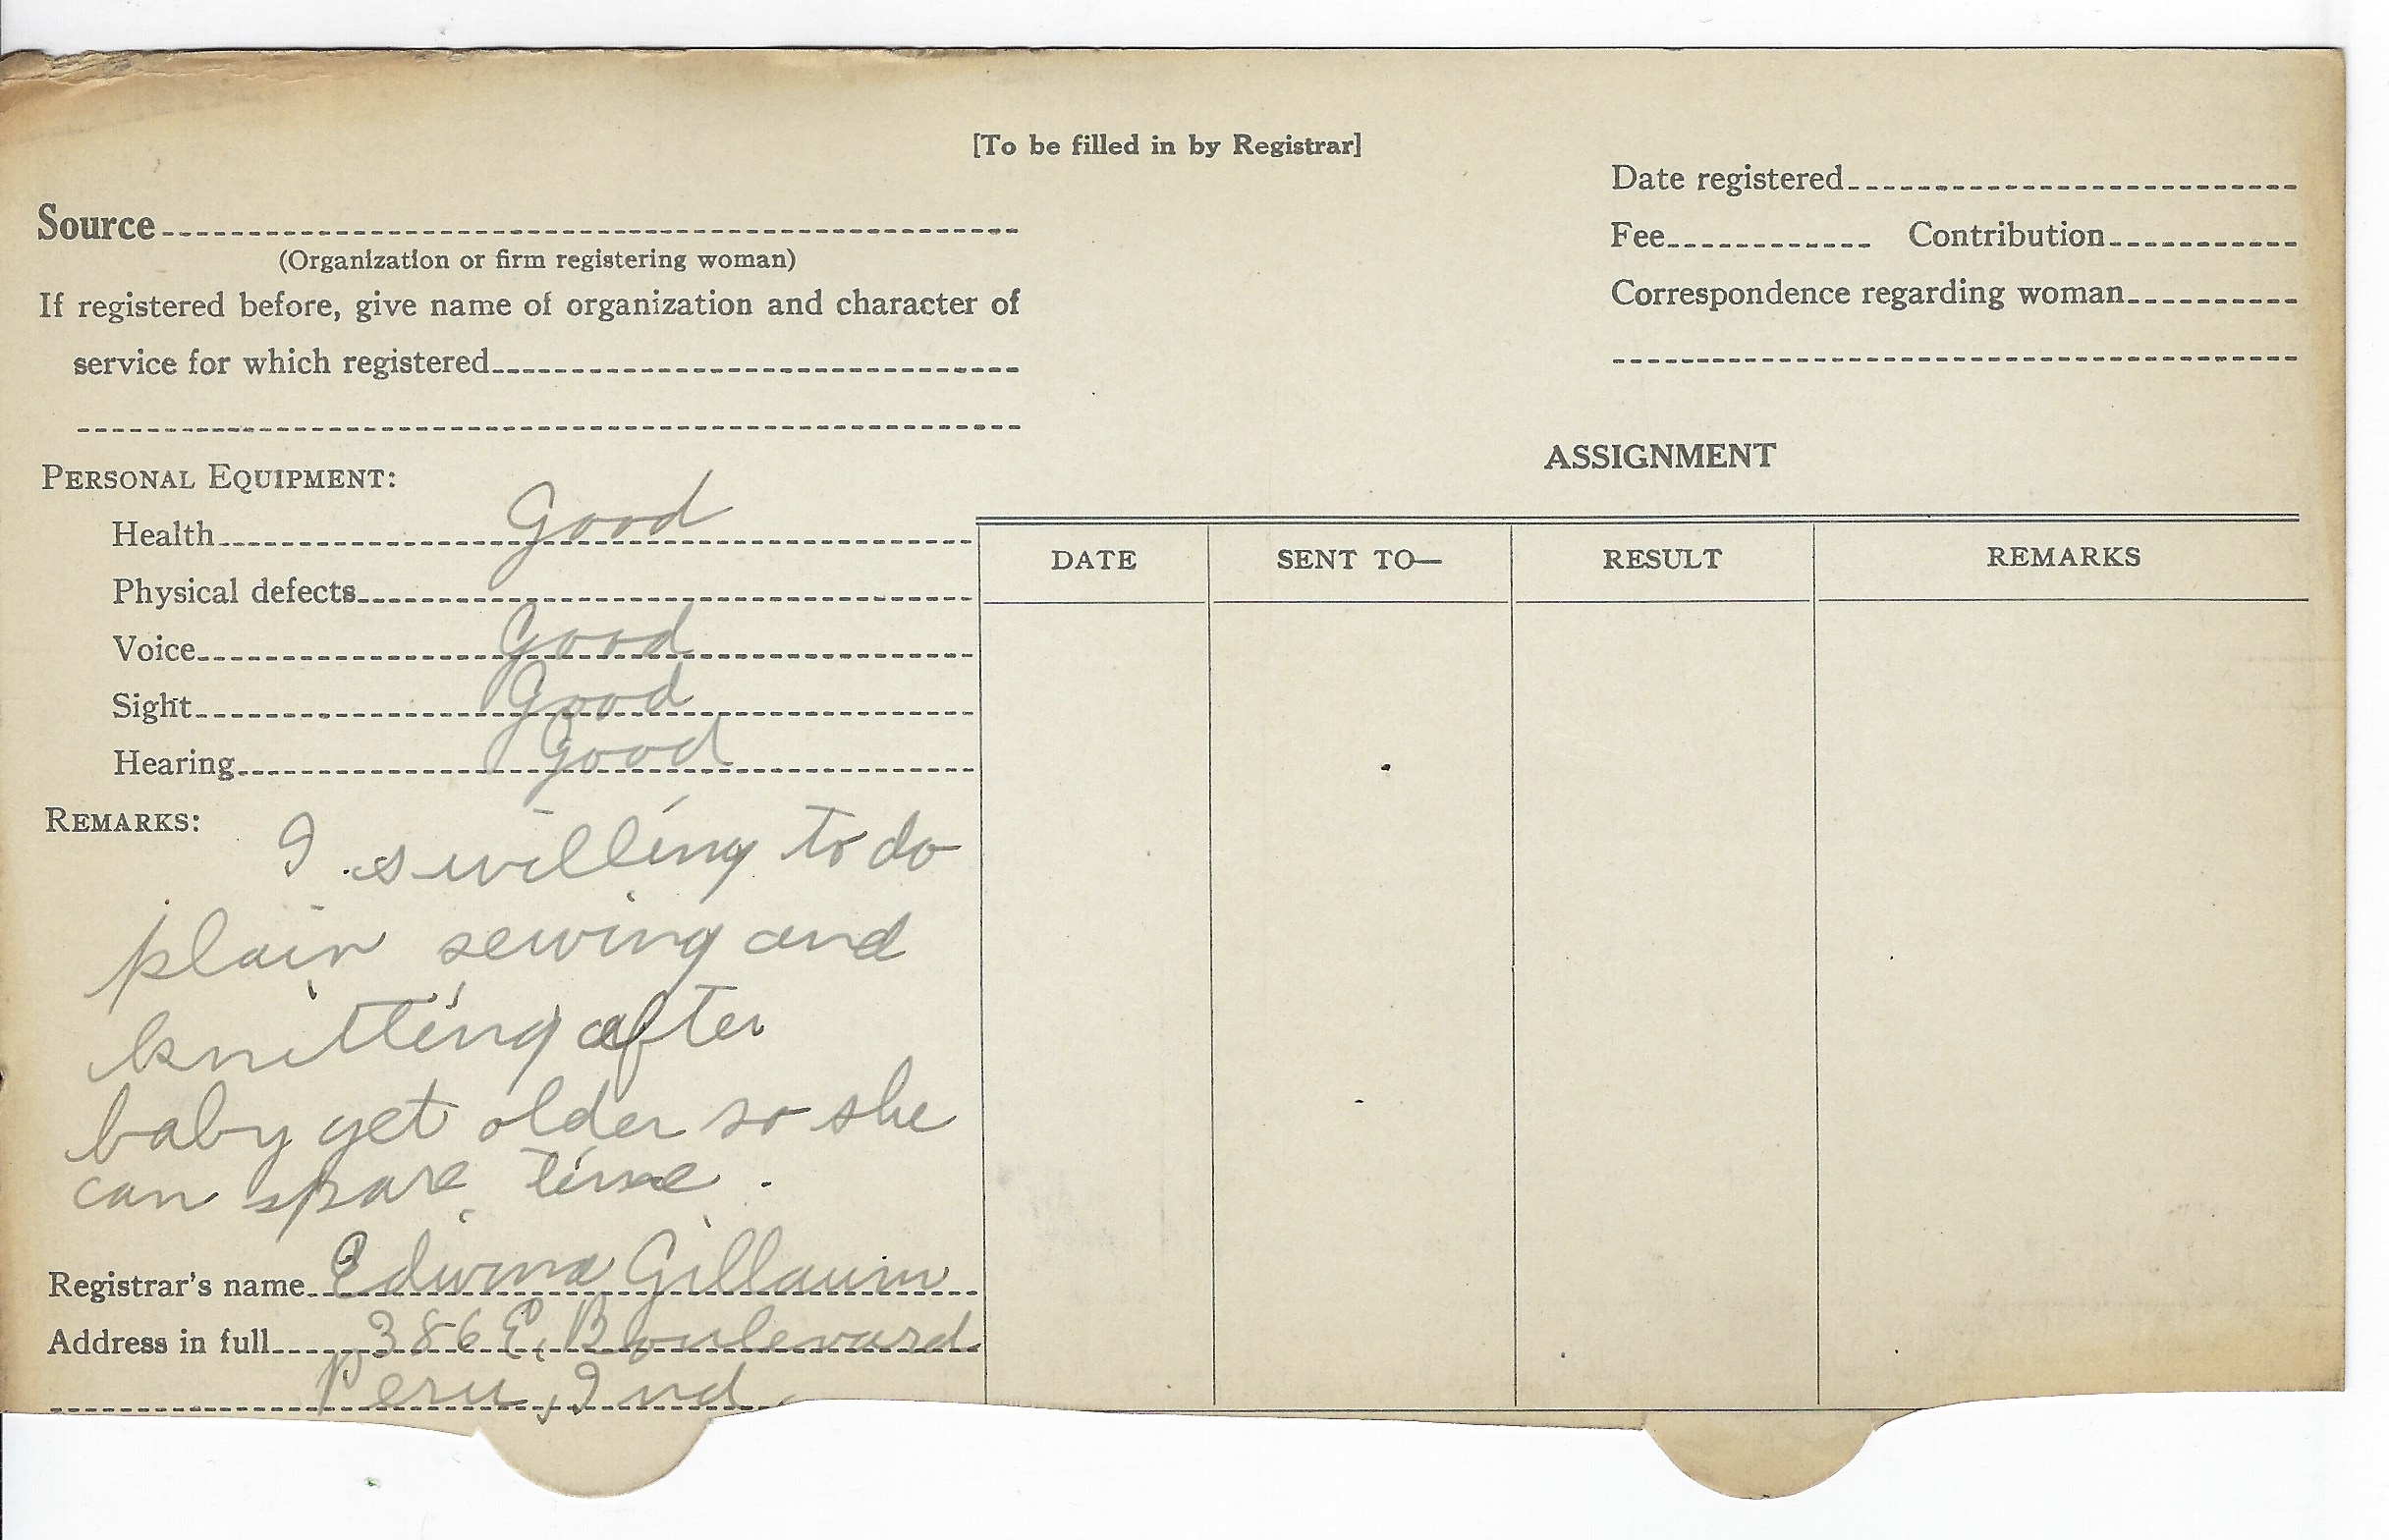 [To be filled in by Registrar]
Date registered
Source
Fee Contribution
(Organization or firm registering woman)
Correspondence regarding woman
If registered before, give name of organization and character of
service for which registered
ASSIGNMENT
PERSONAL EQUIPMENT:
Health Good
Physical defects
Voice Good
Sight Good
Hearing Good
DATE SENT TO— RESULT REMARKS
REMARKS: Is willing to do
plain sewing and
knitting after
baby get older so she
can spare time.
Registrar's name Edwina Gillaum
Address in full 386 E. Boulevard
Peru, Ind.